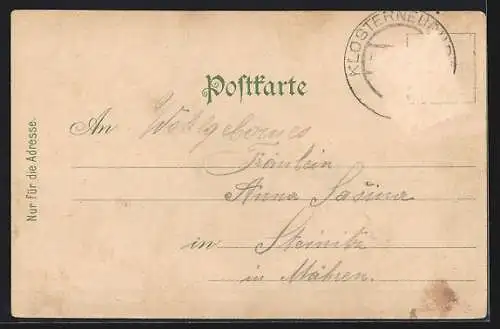 KLOSTERNEUBURG
Postkarte
An Wohlgebornes
Fräulein
Anna Sašina
in Steinitz
in Mähren.
Nur für die Adresse.